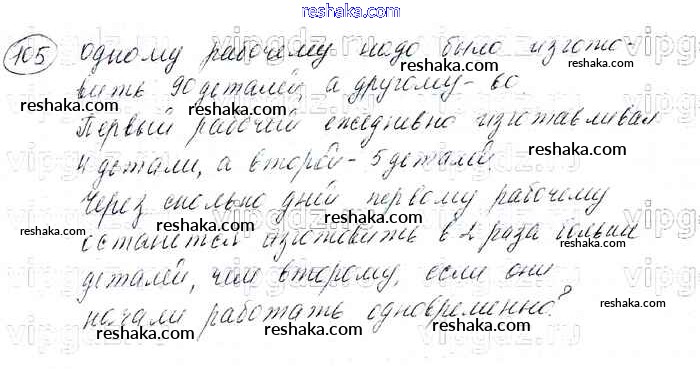 reshaka.com
105 Одному рабочему надо было изгото-
вить 90 деталей, а другому - 60.
reshaka.com reshaka.com reshaka.com
Первый рабочий ежедневно изготавливал
4 детали, а второй - 5 деталей.
reshaka.com reshaka.com reshaka.com
Через сколько дней первому рабочему
reshaka.com reshaka.com reshaka.com
останется изготовить в 2 раза больше
деталей, чем второму, если они
reshaka.com reshaka.com reshaka.com
начали работать одновременно?
reshaka.com reshaka.com reshaka.com